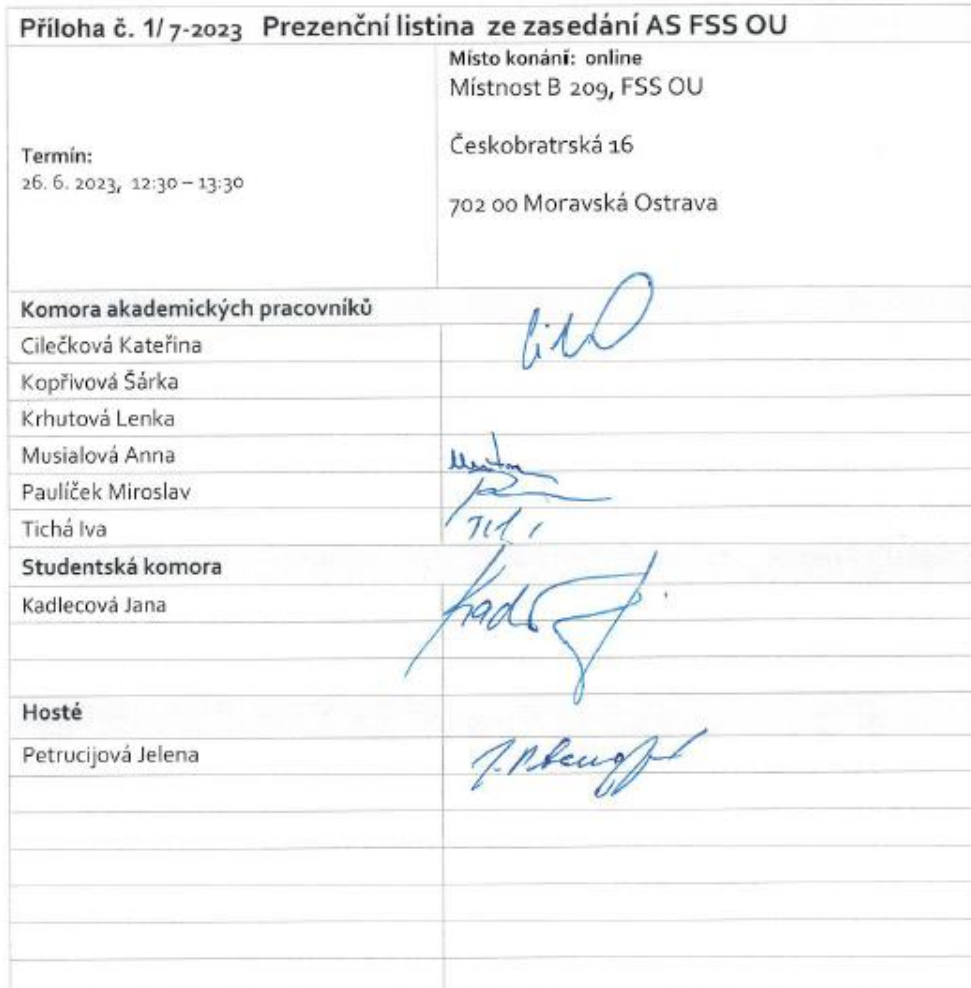 Příloha č. 1/ 7-2023 Prezenční listina ze zasedání AS FSS OU
Termín:
26. 6. 2023, 12:30 – 13:30
Místo konání: online
Místnost B 209, FSS OU
Českobratrská 16
702 00 Moravská Ostrava
Komora akademických pracovníků
Cilečková Kateřina
Kopřivová Šárka
Krhutová Lenka
Musialová Anna
Paulíček Miroslav
Tichá Iva
Studentská komora
Kadlecová Jana
Hosté
Petrucijová Jelena